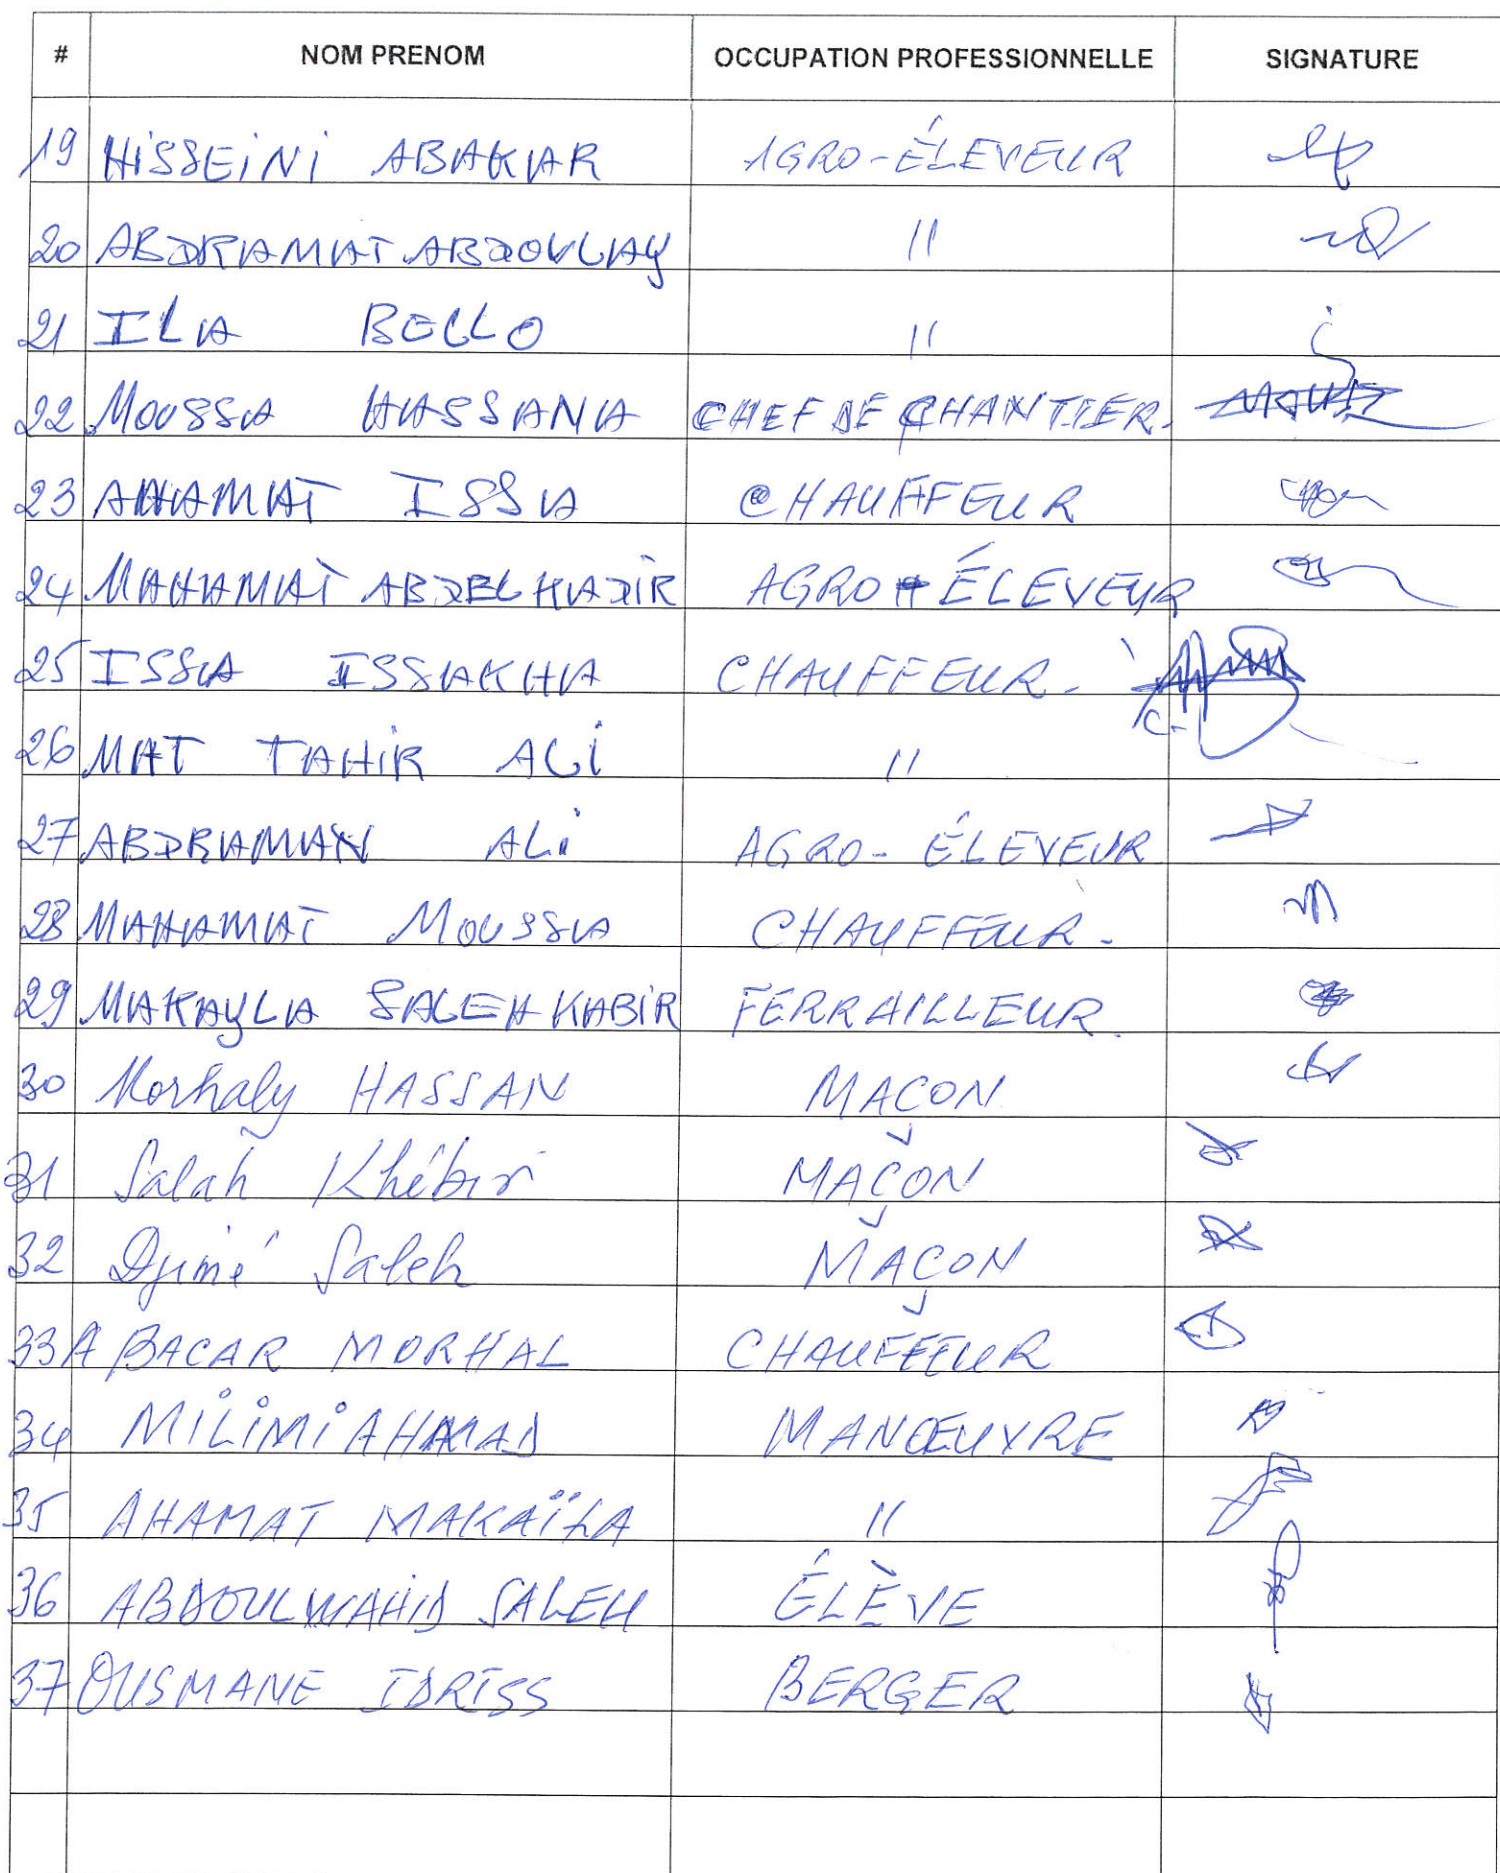 # NOM PRENOM OCCUPATION PROFESSIONNELLE SIGNATURE
19 HISSEINI ABAKAR AGRO-ÉLEVEUR
20 ABDRAMAT ABDOULAY //
21 ILA BELLO //
22 MOUSSA HASSANA CHEF DE CHANTIER.
23 AHAMAT ISSA CHAUFFEUR
24 MAHAMAT ABDELHADIR AGRO-ÉLEVEUR
25 ISSA ISSAKHA CHAUFFEUR-
26 MAT TAHIR ALI //
27 ABDRAMAN ALI AGRO-ÉLEVEUR
28 MAHAMAT MOUSSA CHAUFFEUR-
29 MAKAYLA SALEH KABIR FERRAILLEUR.
30 Morhaly HASSAN MAÇON
31 Salah Khébir MAÇON
32 Djimé Saleh MAÇON
33 ABACAR MORHAL CHAUFFEUR
34 MILIMI AHMAD MANŒUVRE
35 AHAMAT MAKAÏLA //
36 ABDOULWAHID SALEH ÉLÈVE
37 OUSMANE IDRISS BERGER